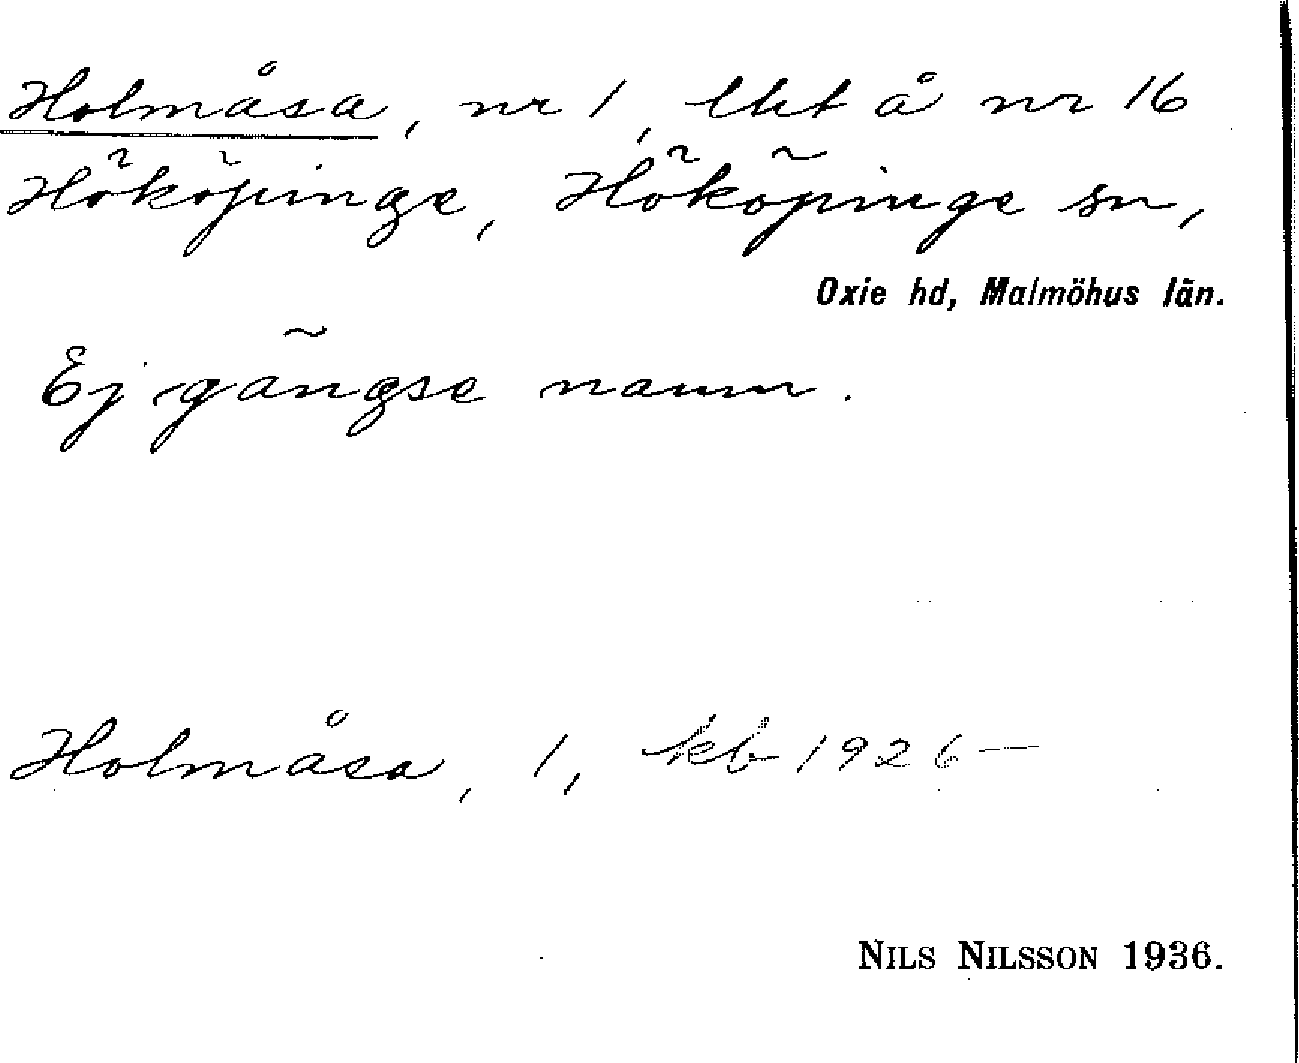 Holmåsa, nr 1, lht å nr 16
Hököpinge, Hököpinge sn,
Oxie hd, Malmöhus län.
Ej gängse namn.
Holmåsa, 1, kb 1926—
NILS NILSSON 1936.